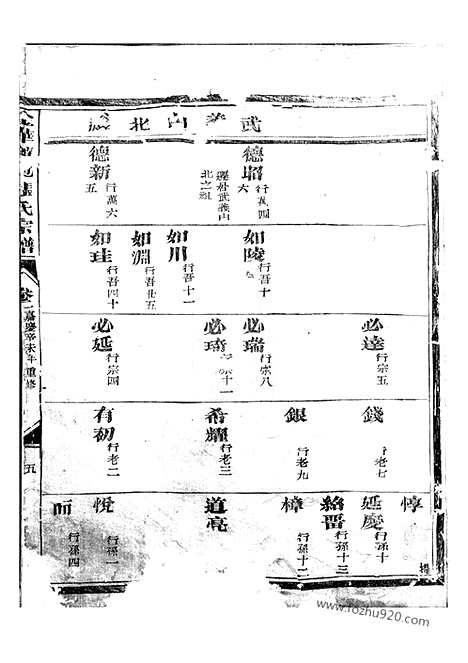 武義山北派
德昭 行萬四六
遷於武義山北之祖
德新 行萬六五
如陵 行吾十
如川 行吾十一
如淵 行吾廿五
如珪 行吾四十
必達 行宗五
必瑞 行宗八
必琦 宗十一
必延 行宗四
錢 行老七
銀 行老九
希耀 行老三
有初 行老二
惇
延慶 行孫十
紹晋 行孫十三
樟 行孫十二
道亮
悅 行孫一
而 行孫四
氏宗譜
卷二 嘉慶辛未年重修
五
www.fozhu920.com